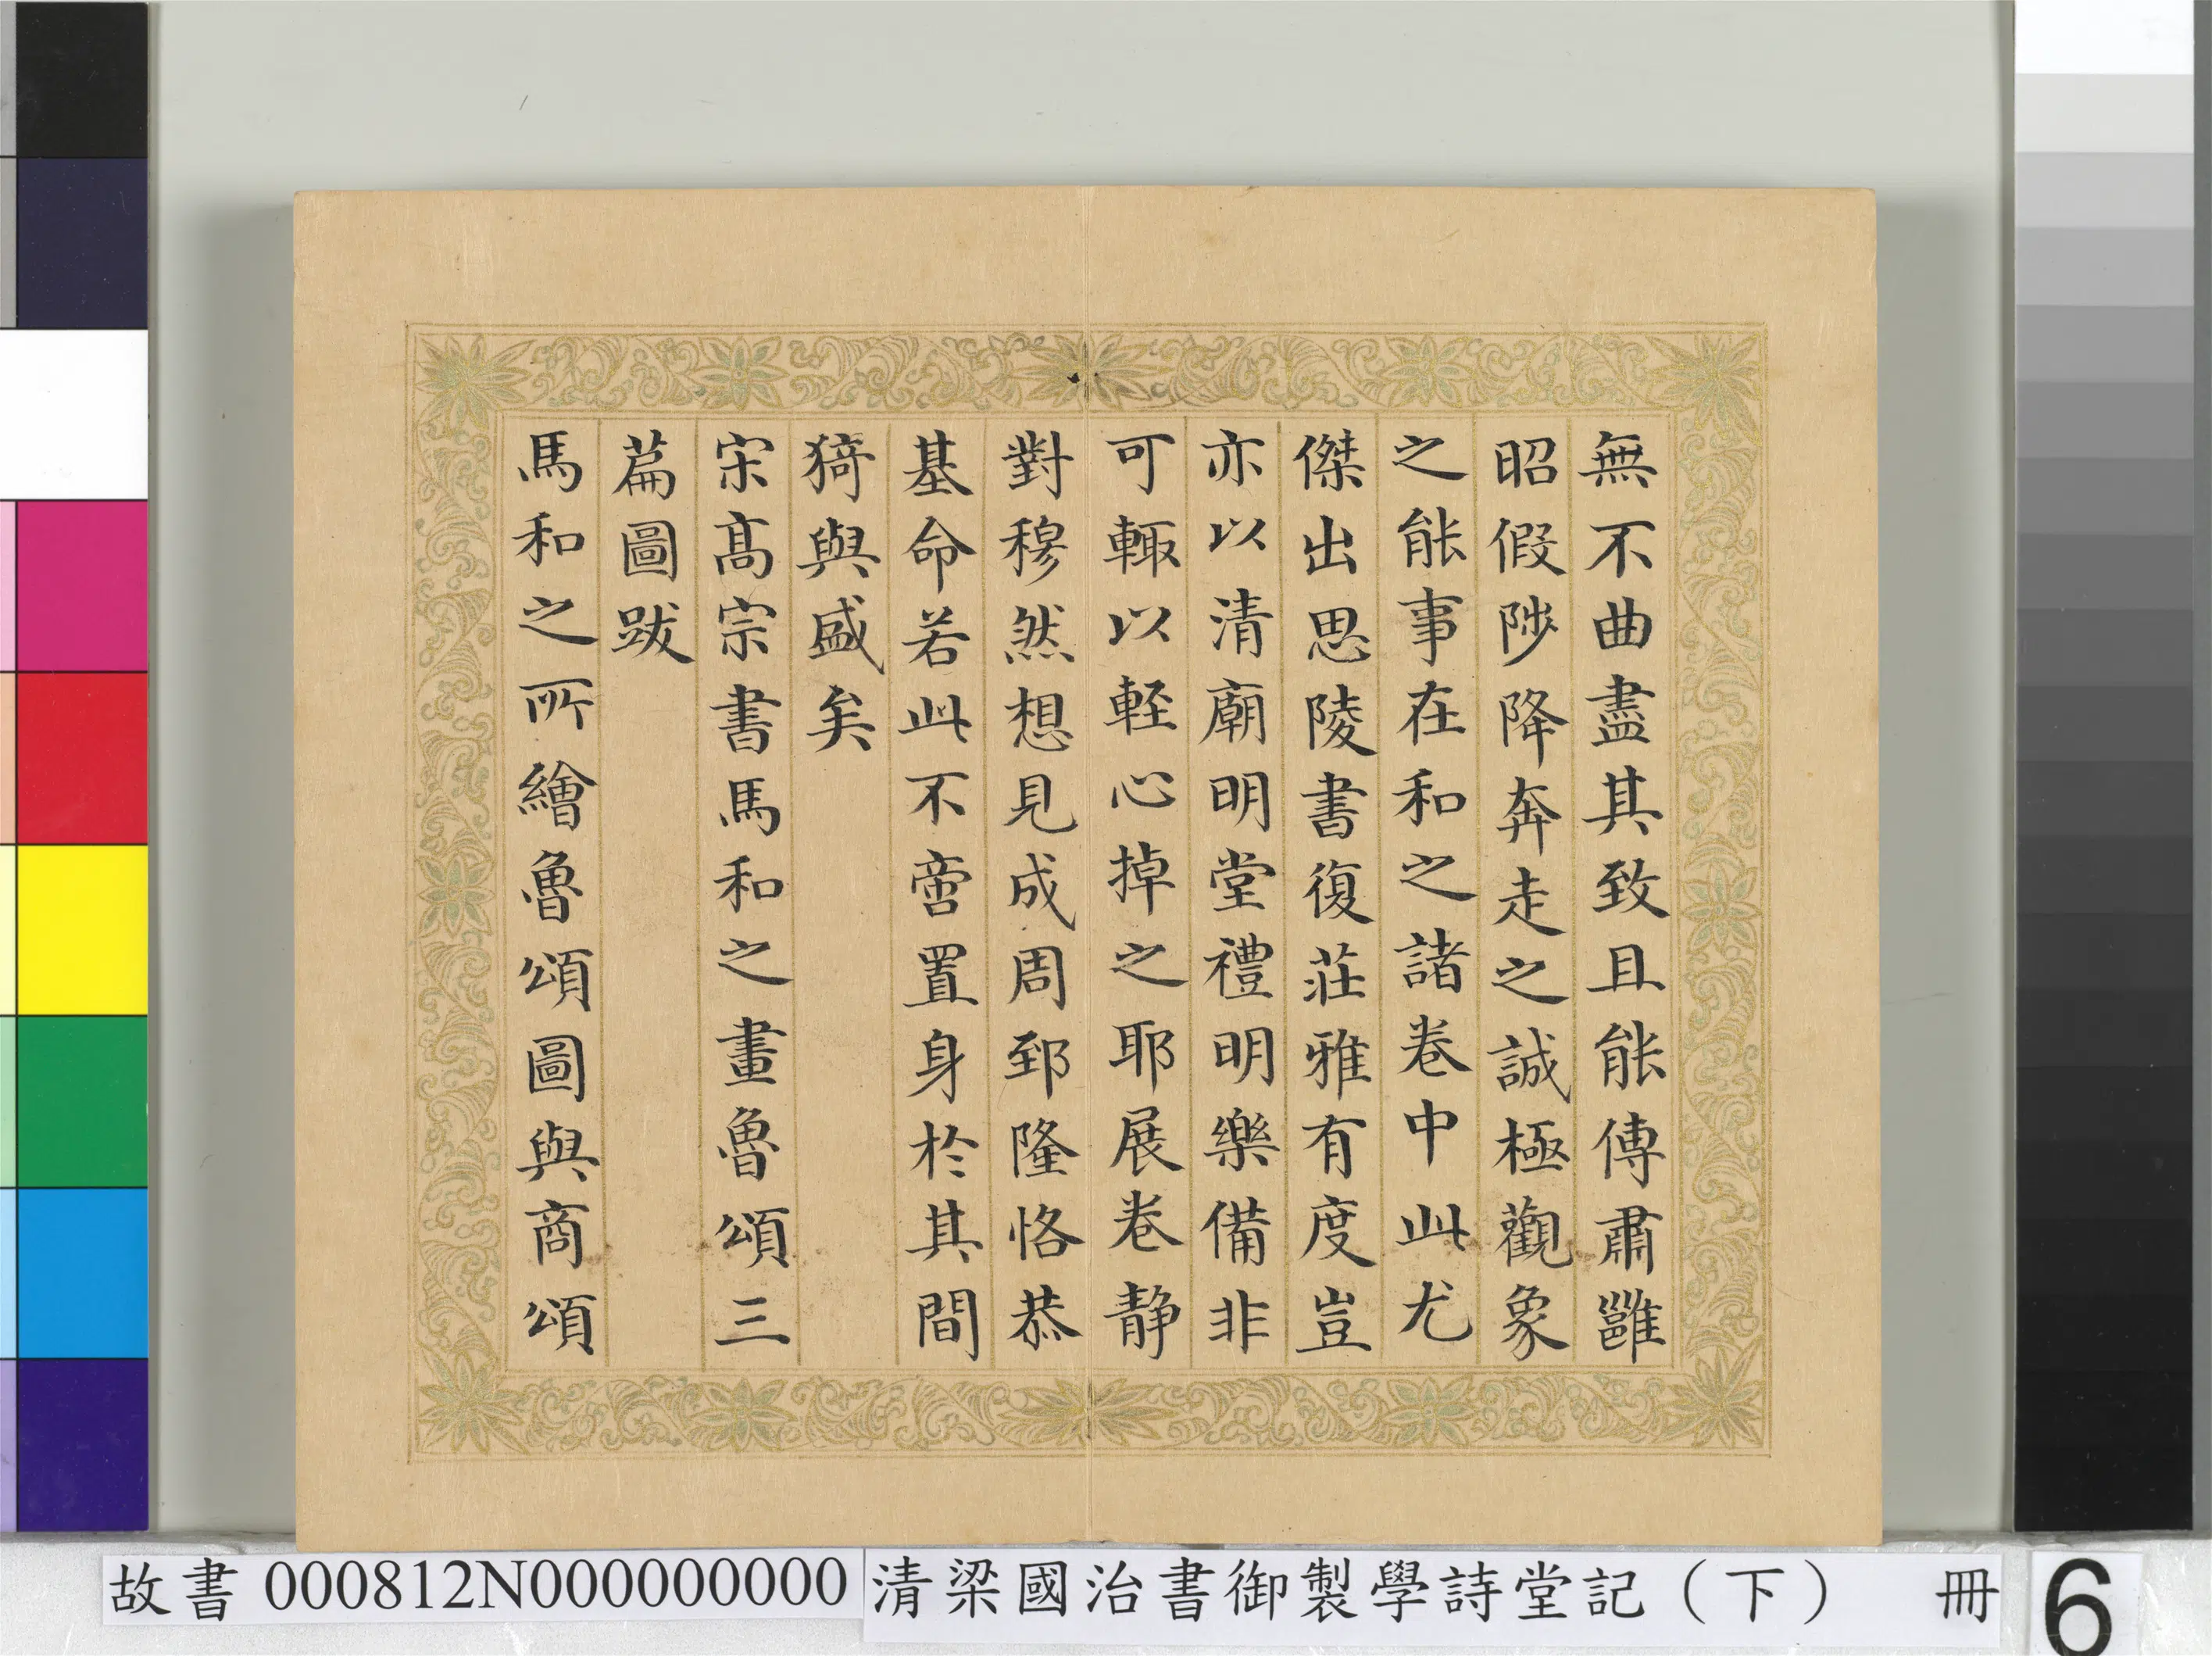 無不曲盡其致且能傳肅雝
昭假陟降奔走之誠極觀象
之能事在和之諸卷中此尤
傑出思陵書復莊雅有度豈
亦以清廟明堂禮明樂備非
可輒以輕心掉之耶展卷靜
對穆然想見成周郅隆恪恭
基命若此不啻置身於其間
猗與盛矣
宋高宗書馬和之畫魯頌三
篇圖跋
馬和之所繪魯頌圖與商頌
故書 000812N000000000 清梁國治書御製學詩堂記（下） 冊 6